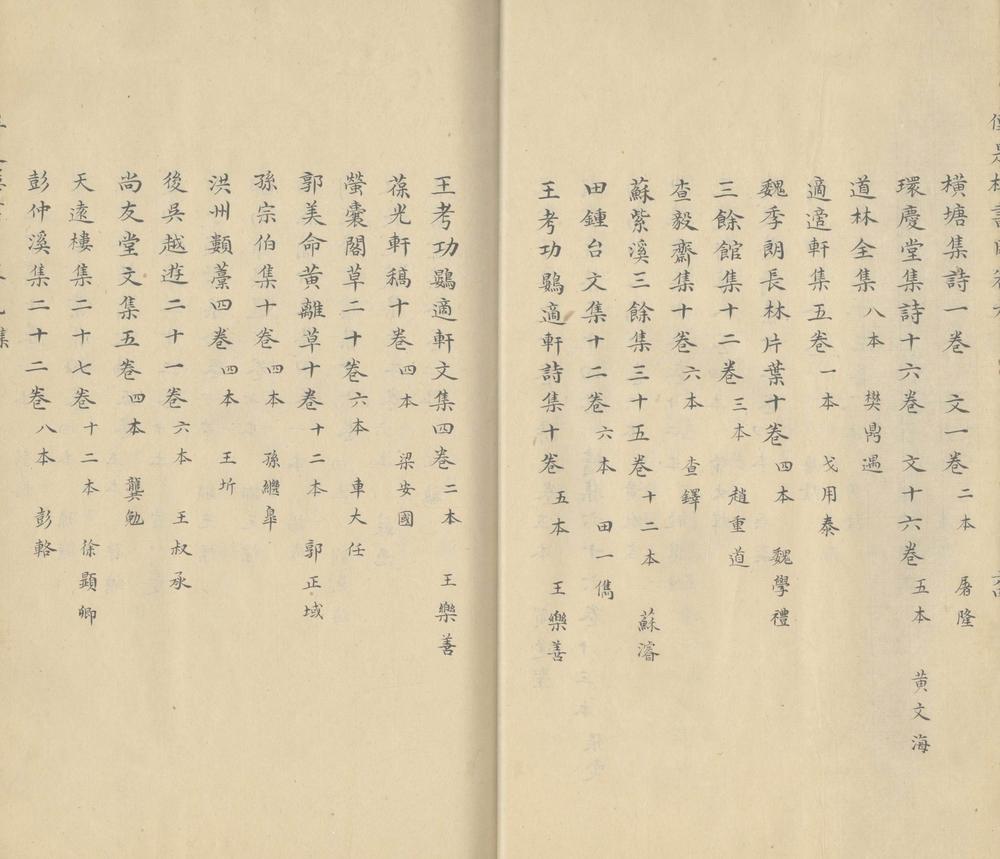 橫塘集詩一卷 文一卷 二本 屠隆
環慶堂集詩十六卷 文十六卷 五本 黄文海
道林全集 八本 樊鼎遇
適適軒集五卷 一本 戈用泰
魏季朗長林片葉十卷 四本 魏學禮
三餘館集十二卷 三本 趙重道
查毅齋集十卷 六本 查鐸
蘇紫溪三餘集三十五卷 十二本 蘇濬
田鍾台文集十二卷 六本 田一儁
王考功鷃適軒詩集十卷 五本 王樂善
王考功鷃適軒文集四卷 二本 王樂善
葆光軒稿十卷 四本 梁安國
螢囊閣草二十卷 六本 車大任
郭美命黄離草十卷 十二本 郭正域
孫宗伯集十卷 四本 孫繼臯
洪州類藁四卷 四本 王圻
後吳越遊二十一卷 六本 王叔承
尚友堂文集五卷 四本 龔勉
天遠樓集二十七卷 十二本 徐顯卿
彭仲溪集二十二卷 八本 彭輅